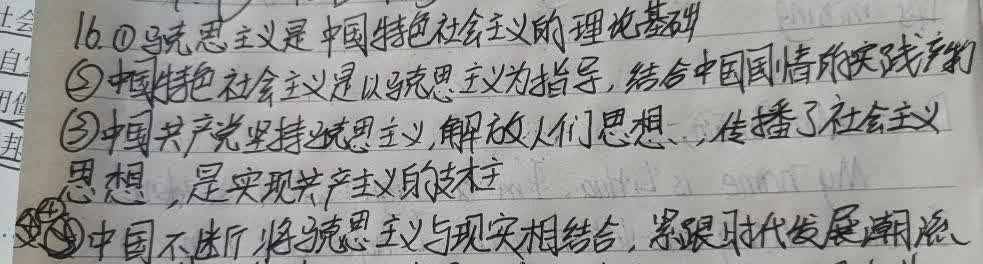 16.①马克思主义是中国特色社会主义的理论基础
②中国特色社会主义是以马克思主义为指导,结合中国国情的实践产物
③中国共产党坚持马克思主义,解放人们思想、,传播了社会主义
思想,是实现共产主义的支柱
④中国不断将马克思主义与现实相结合,紧跟时代发展潮流